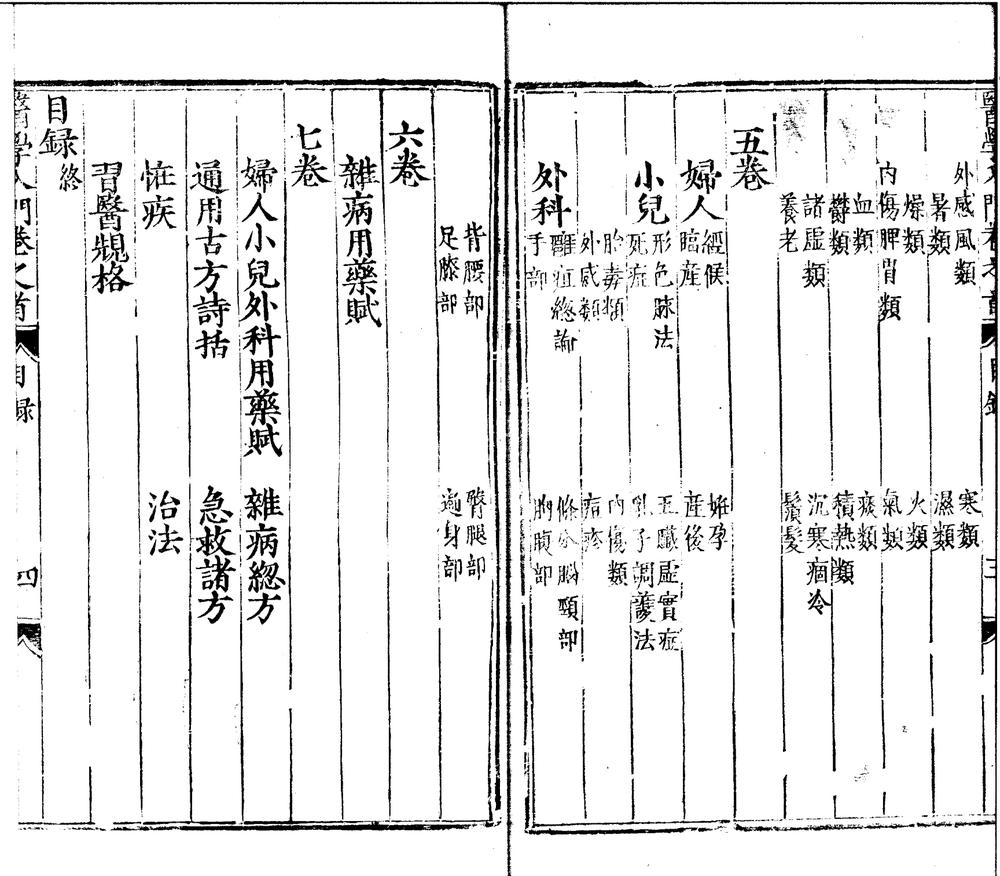 醫學入門卷之首 目錄 三
外感風類 寒類
暑類 濕類
燥類 火類
內傷脾胃類 氣類
血類 痰類
鬱類 積熱類
諸虛類 沉寒痼冷
養老 鬚髮
五卷
婦人 經候 姙孕
臨產 產後
小兒 形色脉法 五臟虛實症
死症 乳子調護法
胎毒類 內傷類
外感類 痘疹
外科 癰疽總論 條分腦頸部
手部 胸腹部
背腰部 臀腿部
足膝部 遍身部
六卷
雜病用藥賦
七卷
婦人小兒外科用藥賦 雜病總方
通用古方詩括 急救諸方
恠疾 治法
習醫規格
目錄終
醫學入門卷之首 目錄 四